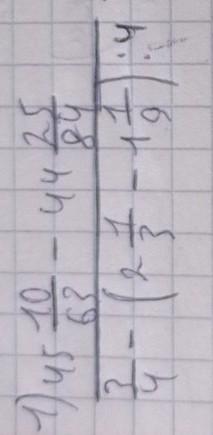 1) 45 10/63 - 44 25/84
3/4 - (2 1/3 - 1 1/9) : 4